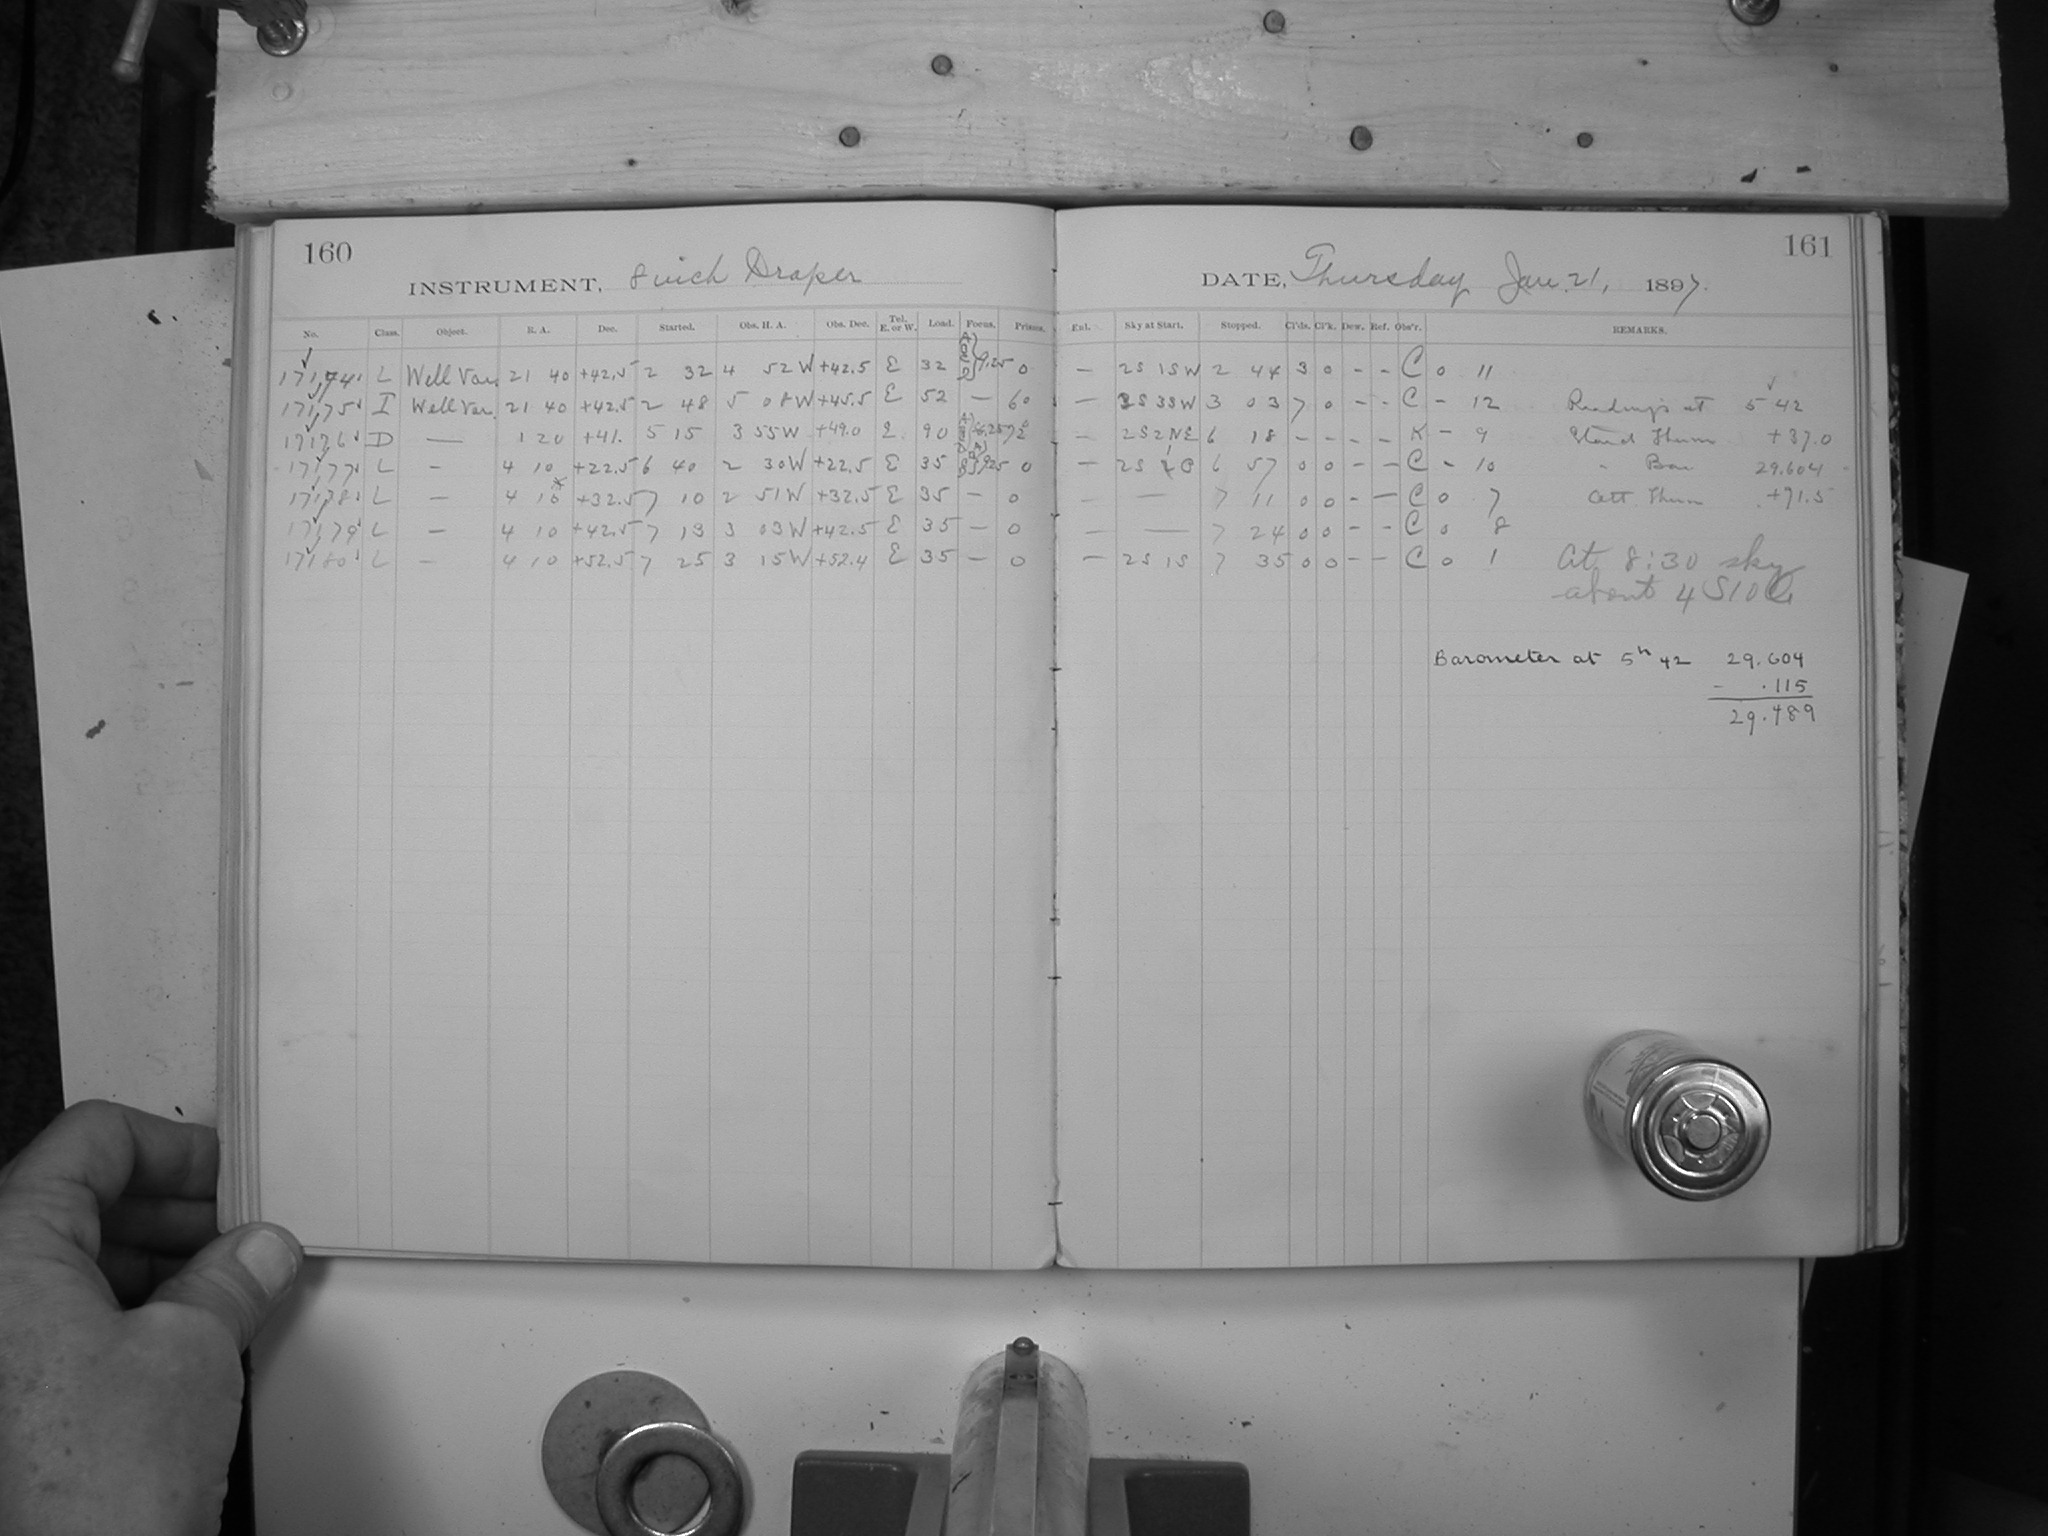 160
161
INSTRUMENT, 8 inch Draper
DATE, Thursday Jan. 21, 1897.
No. Class. Object. R. A. Dec. Started. Obs. H. A. Obs. Dec. Tel. E. or W. Load. Focus. Prisms. Enl. Sky at Start. Stopped. Cl'ds. Cl'k. Dew. Ref. Obs'r. REMARKS.
L Well Var. 21 40 +42.5 2 32 4 52 W +42.5 E 32 9.25 0 — 2S 1SW 2 44 3 0 - - C 0 11
17175 I Well Var. 21 40 +42.5 2 48 5 08W +45.5 E 52 — 60 — 3S 3SW 3 03 7 0 - - C - 12 Readings at 5 42
17176 D — 1 20 +41. 5 15 3 55W +49.0 E. 90 — 2S2NE 6 18 - - - - K - 9 Stand Therm +37.0
17177 L - 4 10 +22.5 6 40 2 30W +22.5 E 35 9.25 0 — 2S 6 57 0 0 - - C - 10 " Bar 29.604
17178 L — 4 10 +32.5 7 10 2 51W +32.5 E 35 — 0 — — 7 11 0 0 - — C 0 7 Att Therm +71.5
17179 L — 4 10 +42.5 7 13 3 03W +42.5 E 35 — 0 — — 7 24 0 0 - - C 0 8
17180 L — 4 10 +52.5 7 25 3 15W +52.4 E 35 — 0 — 2S 1S 7 35 0 0 - - C 0 1 At 8:30 sky
about 4 S10C
Barometer at 5h 42 29.604
- .115
29.489